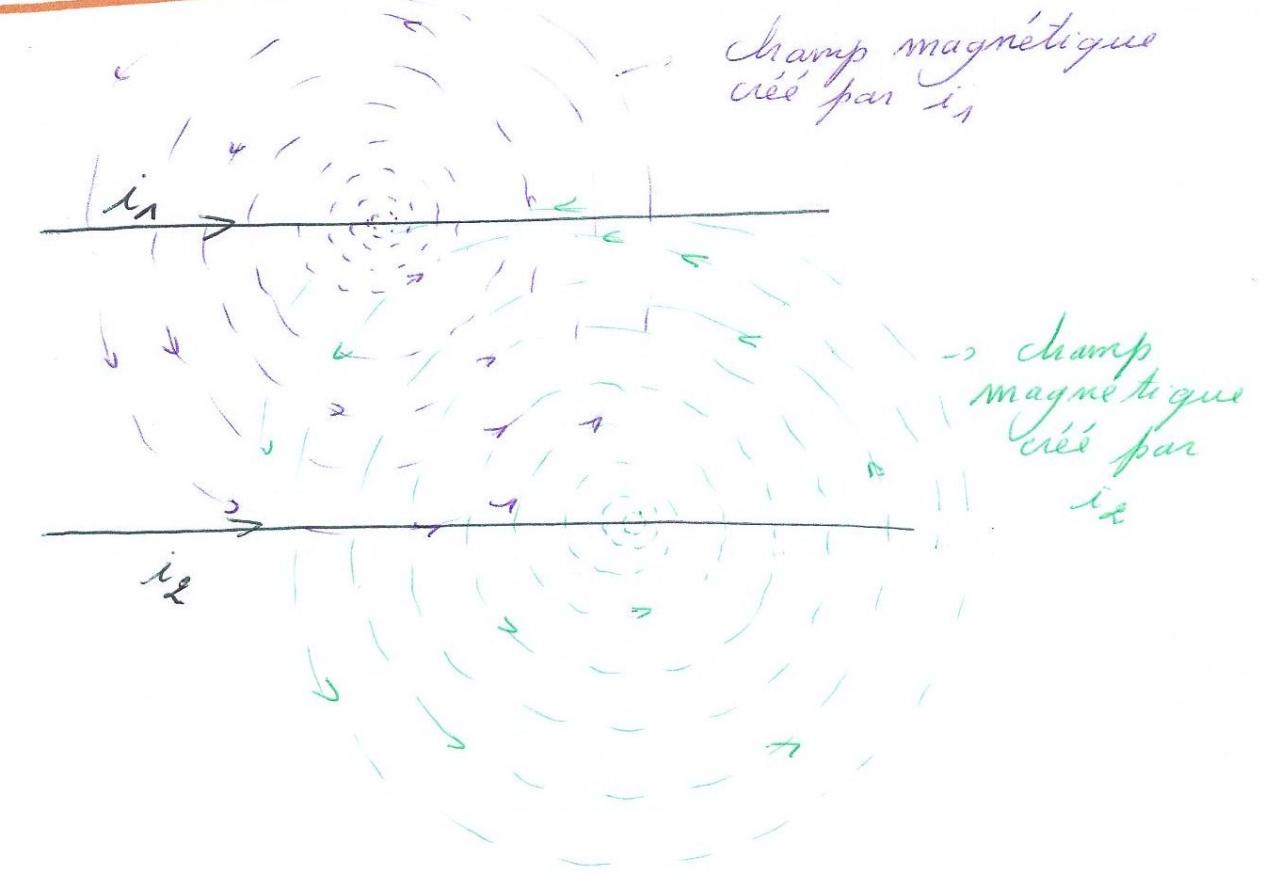 champ magnétique
créé par i1
i1
-> champ
magnétique
créé par
i2
i2